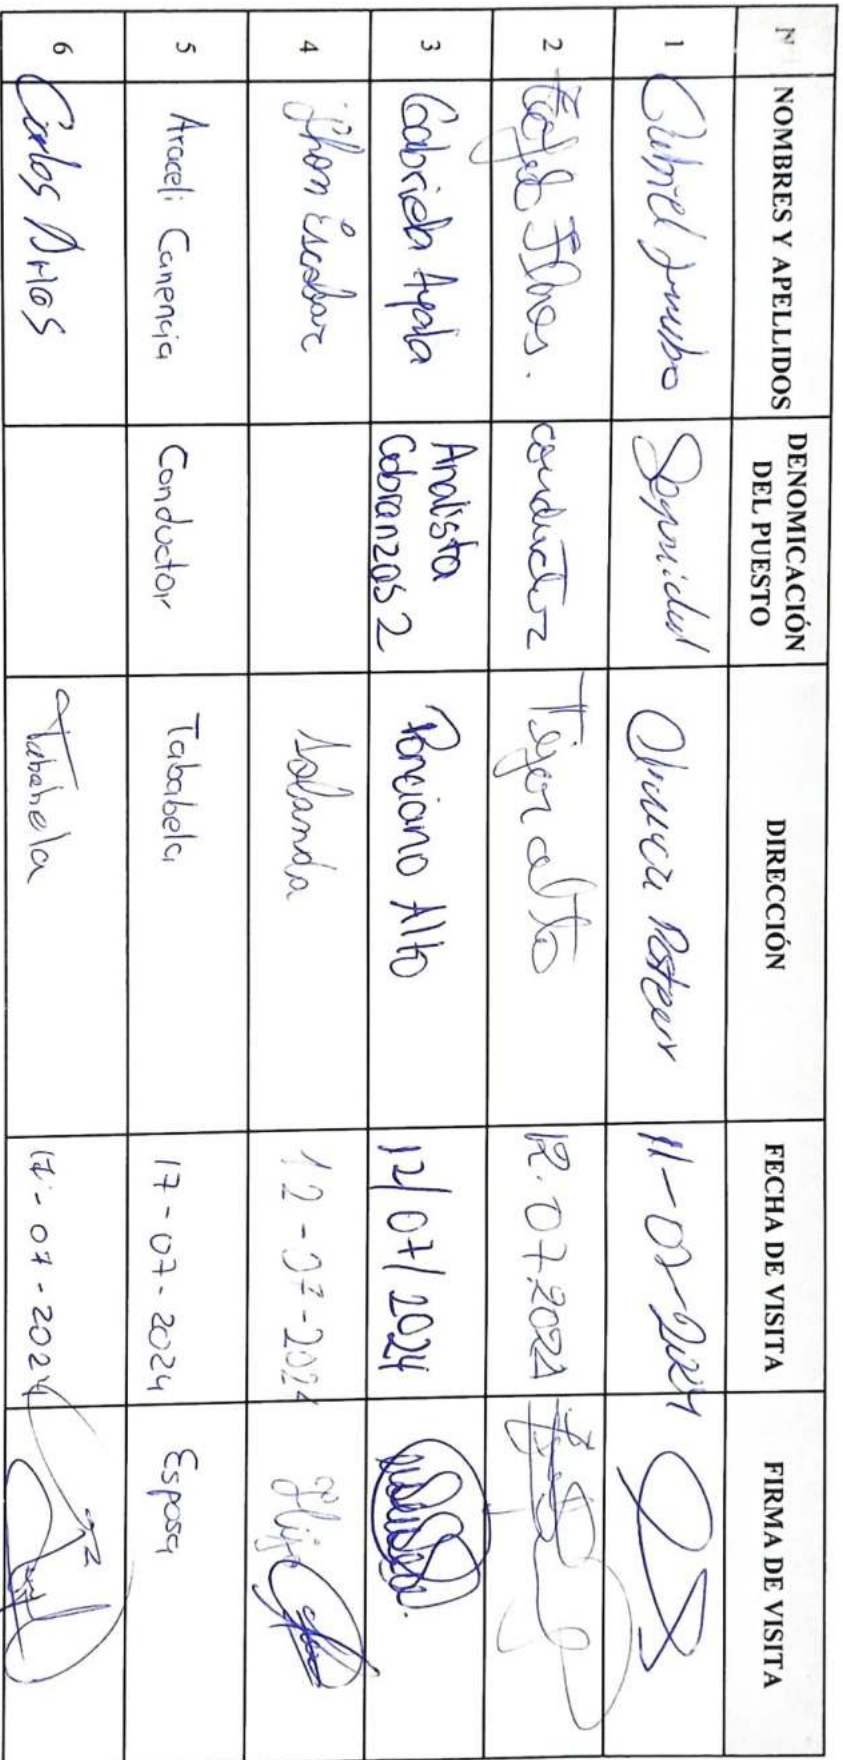 NOMBRES Y APELLIDOS DENOMICACIÓN DEL PUESTO DIRECCIÓN FECHA DE VISITA FIRMA DE VISITA
1 Gabriel 11-07-2024
2 Flores. conductor alto 12.07.2024
3 Gabriela Ayala Analista Cobranzas 2 Ponciano Alto 12/07/2024
4 Jhon Escobar Solanda 12-07-2024 Hijo
5 Araceli Canencia Conductor Tababela 17-07-2024 Esposa
6 Carlos Tababela 17-07-2024